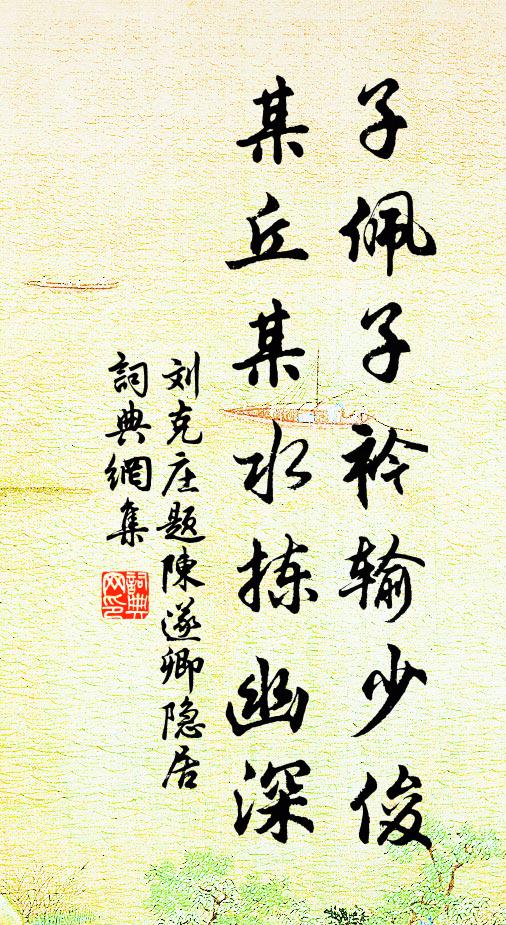 子佩子衿输少俊
某丘某水拣幽深
刘克庄题陳遂卿隐居
詞典網集
詞典网印